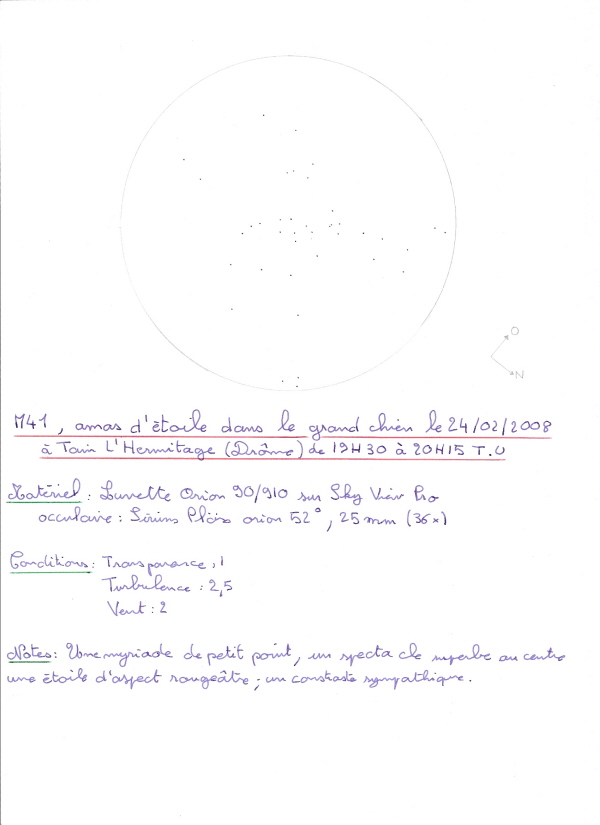 O
N
M41, amas d'étoile dans le grand chien le 24/02/2008
à Tain L'Hermitage (Drôme) de 19H30 à 20H15 T.U
Matériel : Lunette Orion 90/910 sur Sky View Pro
occulaire : Sirius Plöss orion 52°, 25 mm (36x)
Conditions : Transparance : 1
Turbulence : 2,5
Vent : 2
Notes : Une myriade de petit point, un specta cle superbe au centre
une étoile d'aspect rougeâtre ; un constraste sympathique.